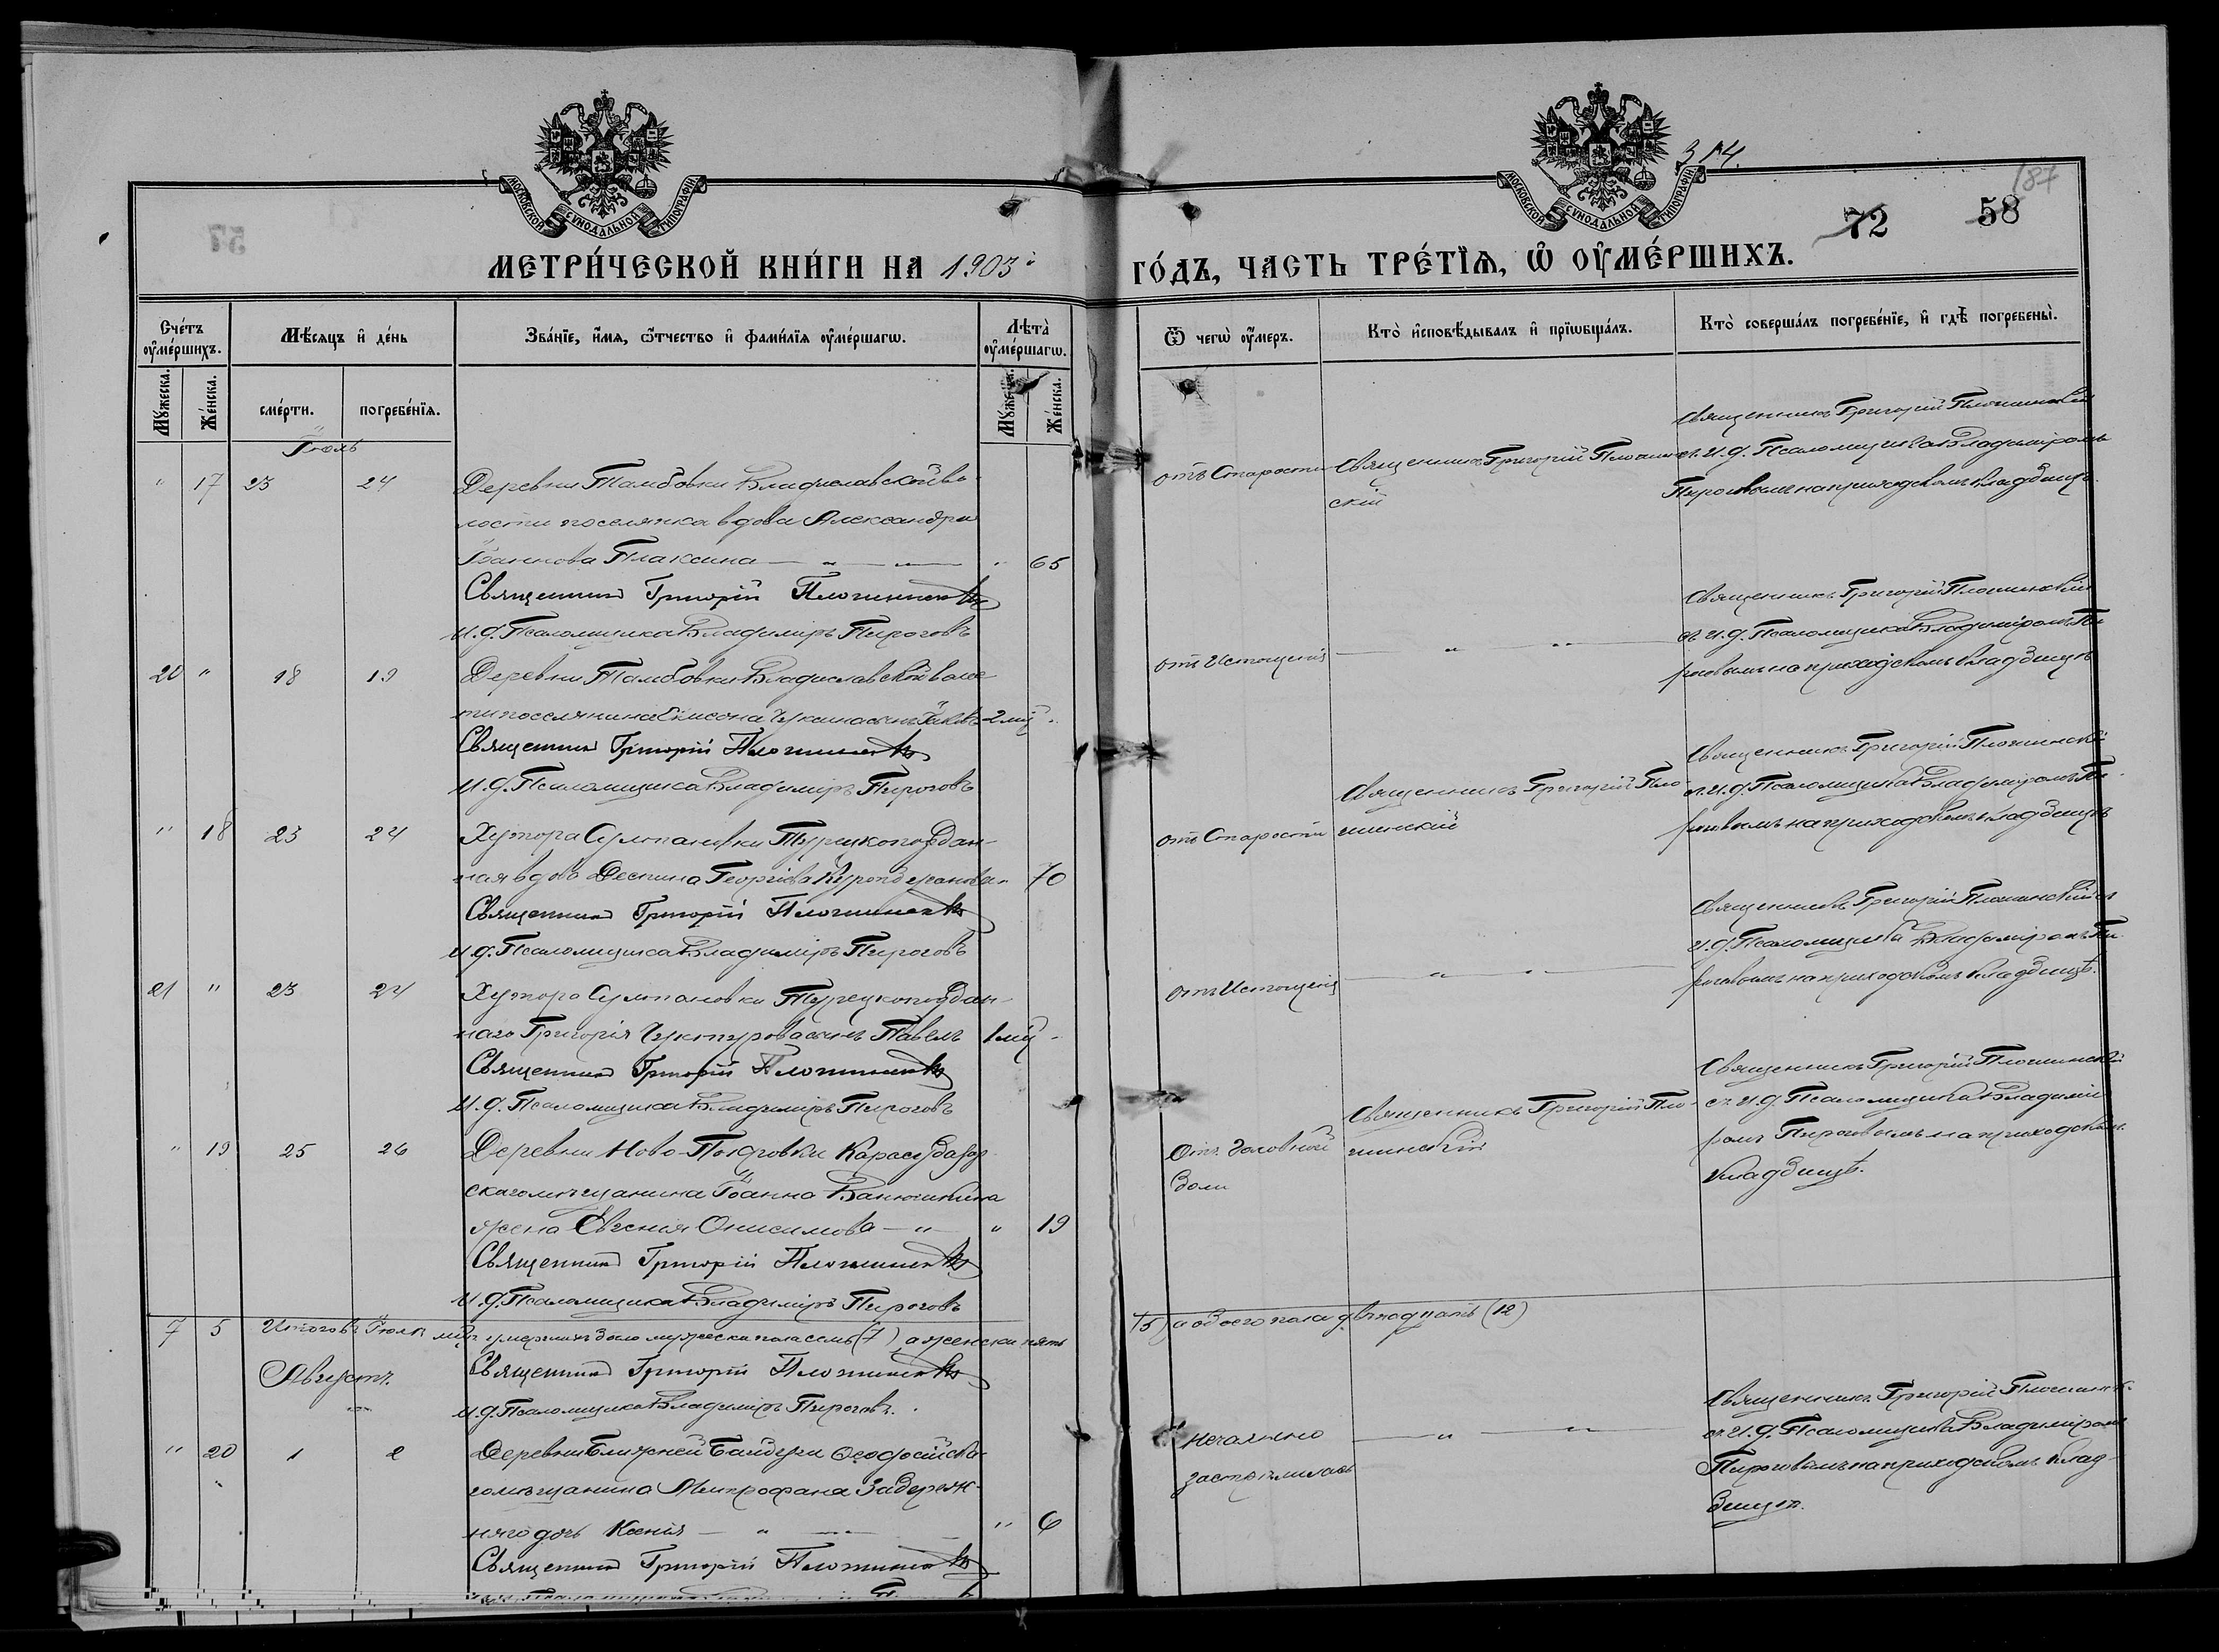 МОСКОВСКОЙ СѴНОДАЛЬНОЙ ТИПОГРАФІИ
МОСКОВСКОЙ СѴНОДАЛЬНОЙ ТИПОГРАФІИ
314.
187
72 58
МЕТРИ́ЧЕСКОЙ КНИ́ГИ НА 1903й
ГО́ДЪ, ЧАСТЬ ТРЕ́ТІѦ, Ѡ ОУМЕ́РШИХЪ.
Сче́тъ оуме́ршихъ.
Мѣ́сяцъ и де́нь
Зва́нїе, и́мя, ѻ́тчество и фами́лїя оуме́ршагѡ.
Лѣта̀ оуме́ршагѡ.
Ѿ чегѡ оу́меръ.
Кто̀ исповѣ́дывалъ и прїѡбща́лъ.
Кто̀ соверша́лъ погребе́нїе, и гдѣ̀ погребены̀.
Му́жеска. Же́нска. сме́рти. погребе́нїя. Му́жеска. Же́нска.
Іюль
" 17 23 24 Деревни Тамбовки Владиславской во-
лости поселянка вдова Александра
Іоаннова Плаксина — " — " 65
Священникъ Григорій Плотинскій
И.д. Псаломщика Владиміръ Пироговъ
отъ Старости
Священникъ Григорій Плотин-
скій
Священникъ Григорій Плотинскій
съ И.д. Псаломщика Владиміромъ
Пироговымъ на приходскомъ кладбищѣ.
20 " 18 19 Деревни Тамбовки Владиславской волос-
ти поселянина сынъ Іаковъ 2 мѣ. "
Священникъ Григорій Плотинскій
И.д. Псаломщика Владиміръ Пироговъ
отъ Истощенія
— " — " —
Священникъ Григорій Плотинскій
съ И.д. Псаломщика Владиміромъ Пи-
роговымъ на приходскомъ кладбищѣ
" 18 23 24 Хутора Султановки Турецкоподдан-
ная вдова Деспина Георгіева " 70
Священникъ Григорій Плотинскій
И.д. Псаломщика Владиміръ Пироговъ
отъ Старости
Священникъ Григорій Пло-
тинскій
Священникъ Григорій Плотинскій
съ И.д. Псаломщика Владиміромъ Пи-
роговымъ на приходскомъ кладбищѣ
21 " 23 24 Хутора Султановки Турецкоподдан-
наго Григорія сынъ Павелъ 1 мѣ. "
Священникъ Григорій Плотинскій
И.д. Псаломщика Владиміръ Пироговъ
отъ Истощенія
— " — " —
Священникъ Григорій Плотинскій съ
И.д. Псаломщика Владиміромъ Пи-
роговымъ на приходскомъ кладбищѣ.
" 19 25 26 Деревни Ново-Покровки Карасубазар-
скаго мѣщанина Іоанна
жена Евгенія Онисимова — " — " 19
Священникъ Григорій Плотинскій
И.д. Псаломщика Владиміръ Пироговъ
Отъ Головной
боли
Священникъ Григорій Пло-
тинскій
Священникъ Григорій Плотинскій
съ И.д. Псаломщика Владимі-
ромъ Пироговымъ на приходскомъ
кладбищѣ.
7 5 Итого въ Іюлѣ мѣц. умершихъ было мужеска пола семь (7), а женска пять
(5) а обоего пола двѣнадцать (12)
Священникъ Григорій Плотинскій
И.д. Псаломщика Владиміръ Пироговъ.
Августъ.
" 20 1 2 Деревни Ближней Байбуги Ѳеодосійска-
го мѣщанина Митрофана Забереж-
няго дочь Ксенія — " — " 6
Священникъ Григорій Плотинскій
нечаянно
застрѣлилась
— " — " —
Священникъ Григорій Плотинск.
съ И.д. Псаломщика Владиміромъ
Пироговымъ на приходскомъ клад-
бищѣ.